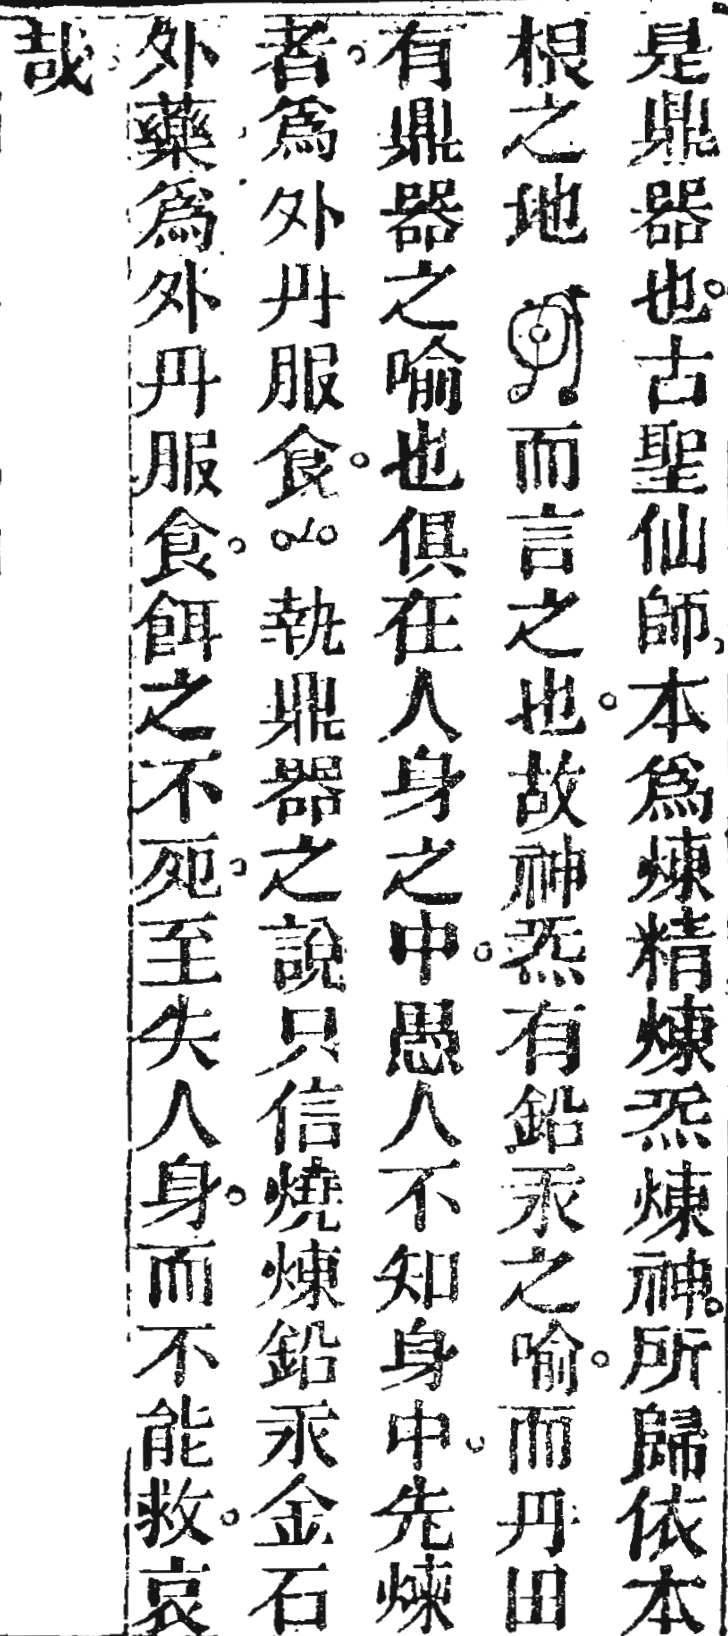 是鼎器也。古聖仙師、本爲煉精煉炁煉神。所歸依本
根之地而言之也。故神炁有鉛汞之喻。而丹田
有鼎器之喻也俱在人身之中。愚人不知身中。先煉
者。爲外丹服食。執鼎器之說只信燒煉鉛汞金石
外藥爲外丹服食。餌之不死。至失人身。而不能救。哀
哉